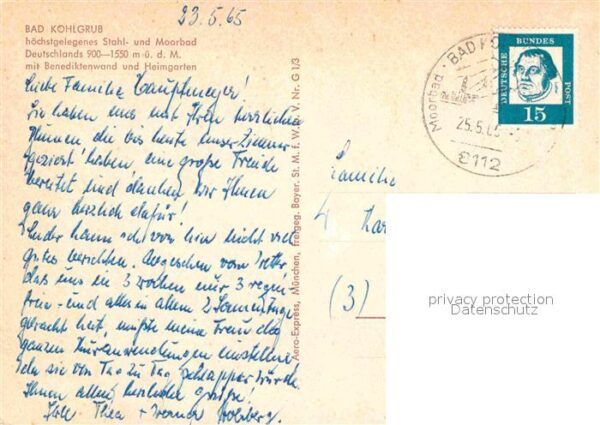 23.5.65
BAD KOHLGRUB
höchstgelegenes Stahl- und Moorbad
Deutschlands 900—1550 m ü. d. M.
mit Benediktenwand und Heimgarten
Liebe Familie
Sie haben uns mit Ihren herrlichen
Blumen, die bis heute unser Zimmer
"geziert" haben eine große Freude
bereitet und danken wir Ihnen
ganz herzlich dafür!
Leider kann ich von hier nicht viel
gutes berichten. Abgesehen vom Wetter,
das uns in 3 Wochen nur 3 regen-
freie - und alles in allem 2 Sonnentage
gebracht hat, mußte meine Frau die
ganzen Kuranwendungen einstellen
da sie von Tag zu Tag schlapper wurde
Ihnen allen herzliche Grüße!
Ihre Thea + Werner
Aero-Express, München, Freigeg. Bayer. St. M. f. W. u. V. Nr. G 1/3
Familie
(3)
Moorbad · BAD KO
25.5.65
8112
DEUTSCHE
BUNDES
POST
15
privacy protection
Datenschutz